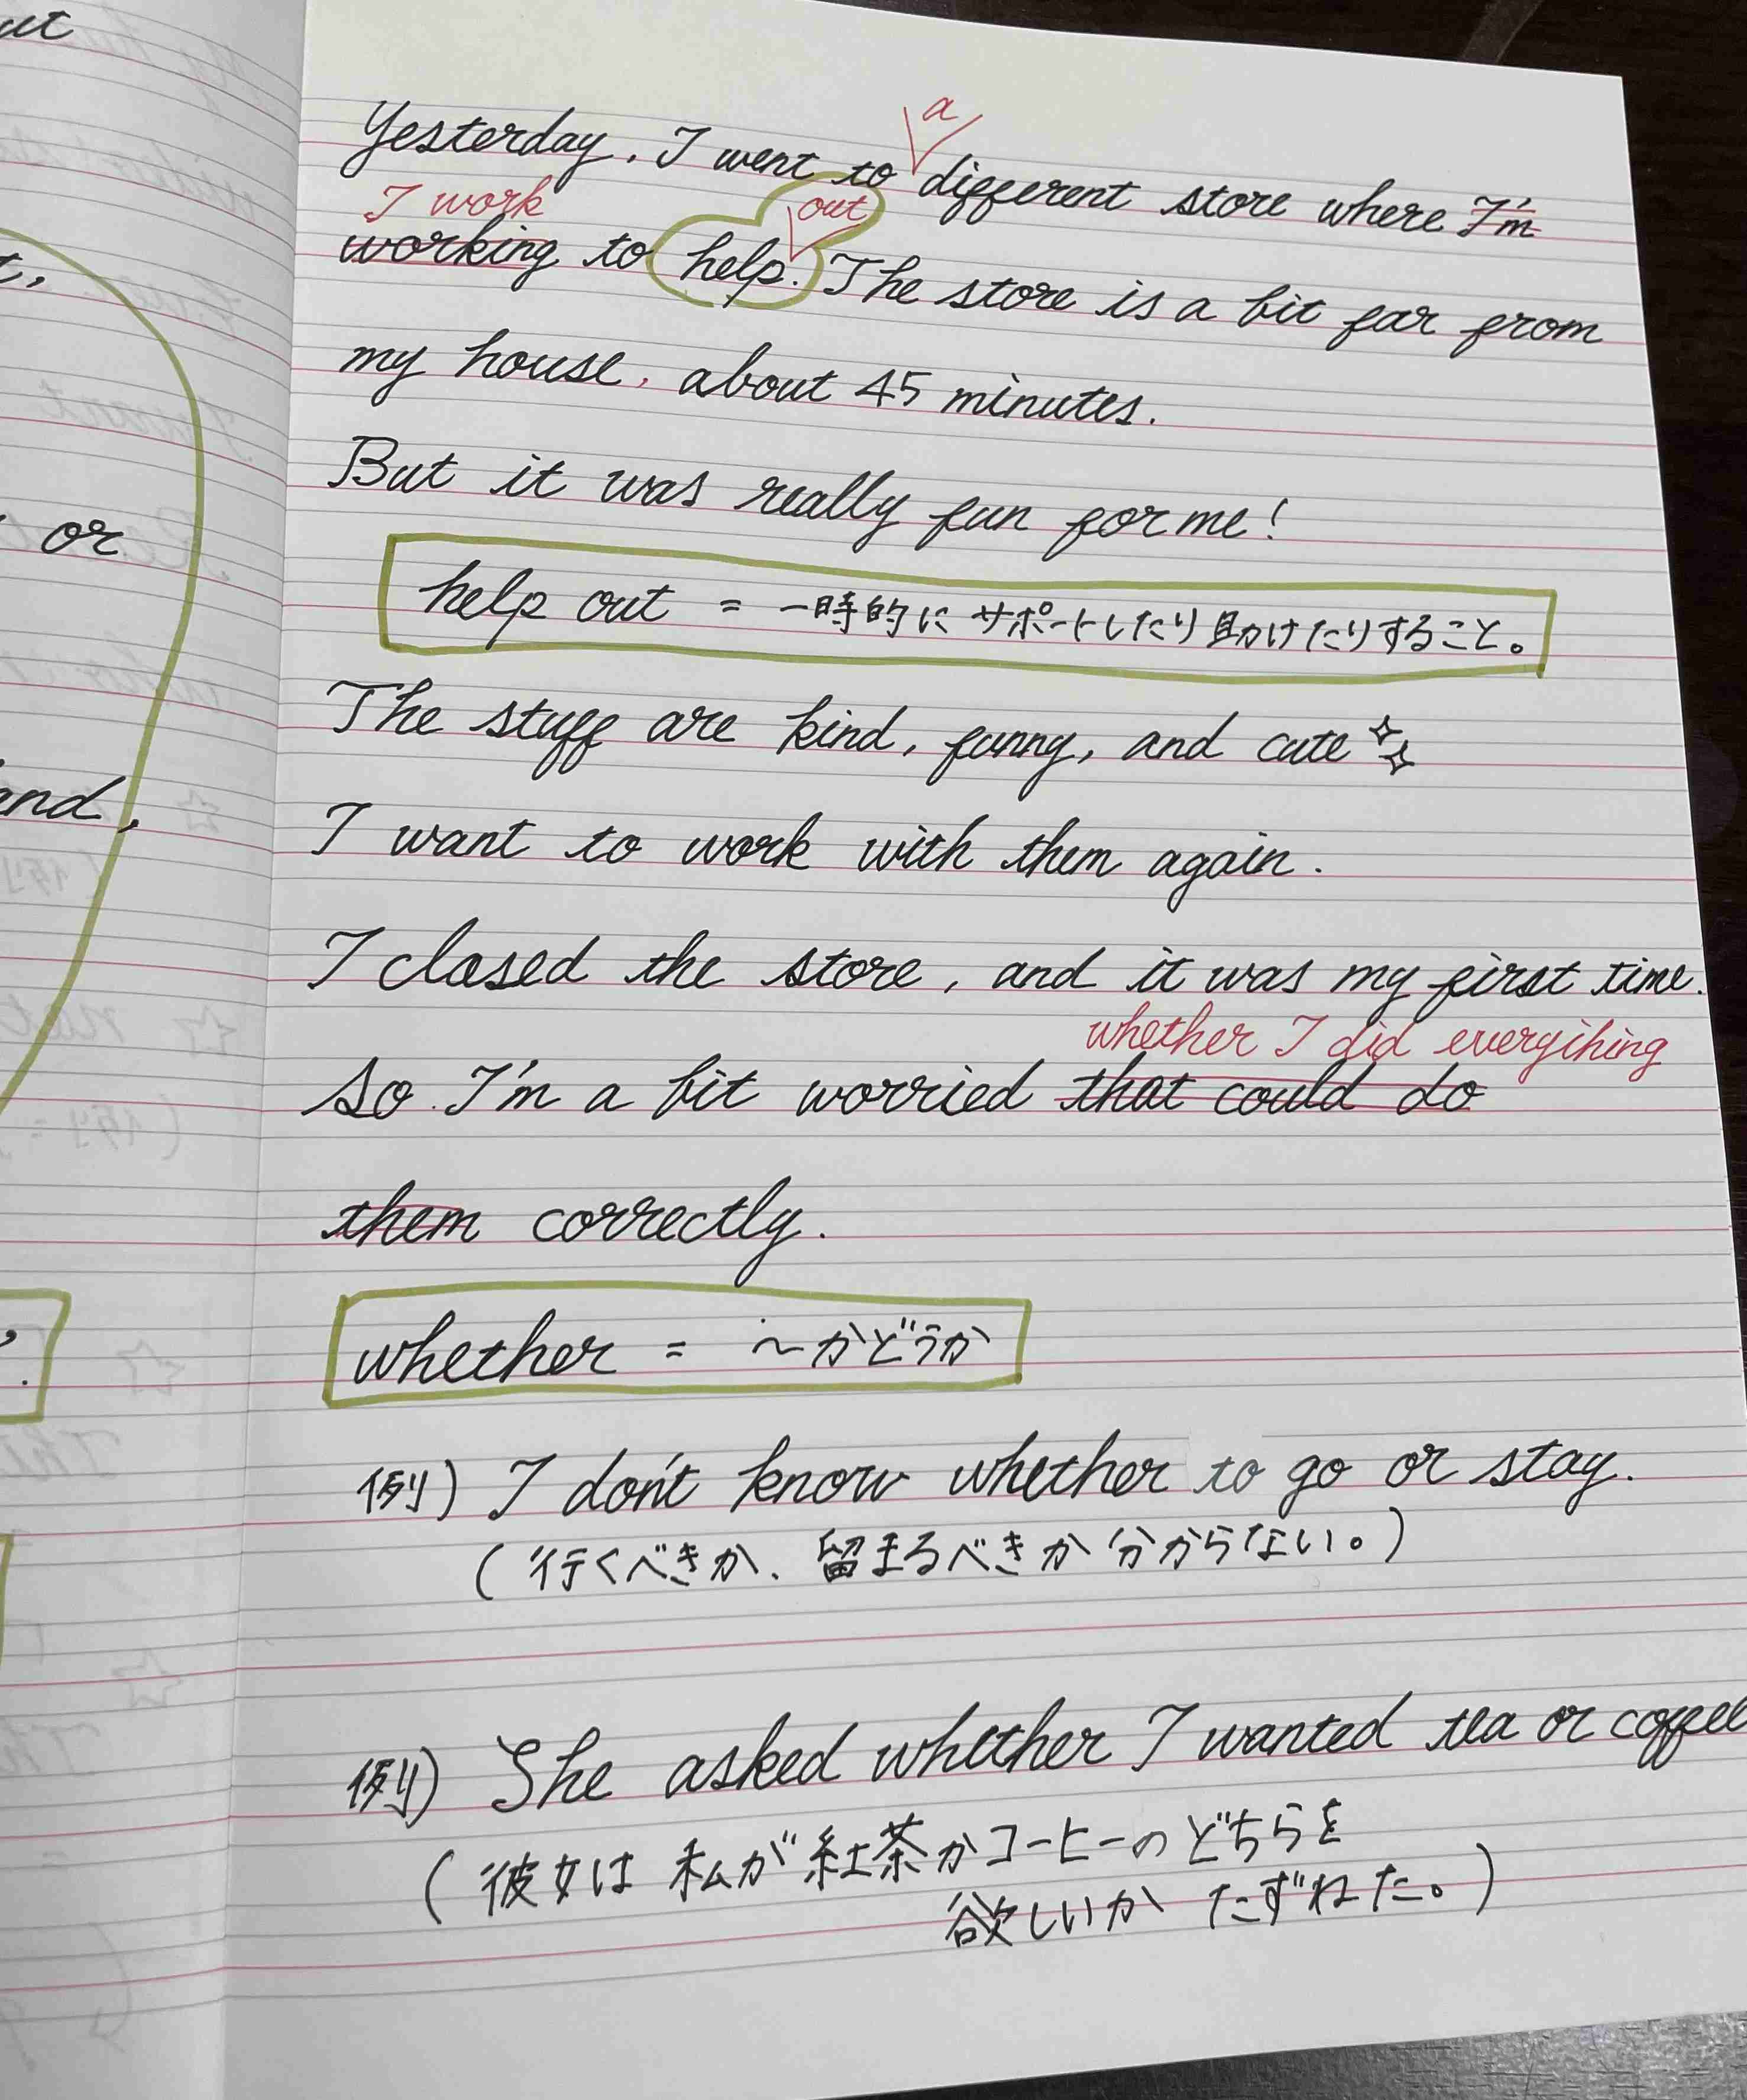 ut
t,
or
and,
a
Yesterday, I went to different store where I'm
I work
out
working to help. The store is a bit far from
my house, about 45 minutes.
But it was really fun for me!
help out = 一時的にサポートしたり助けたりすること。
The stuff are kind, funny, and cute
I want to work with them again.
I closed the store, and it was my first time.
whether I did everything
So I'm a bit worried that could do
them correctly.
whether = ～かどうか
例) I don't know whether to go or stay.
(行くべきか、留まるべきか分からない。)
例) She asked whether I wanted tea or coffee
(彼女は私が紅茶かコーヒーのどちらを
欲しいかたずねた。)